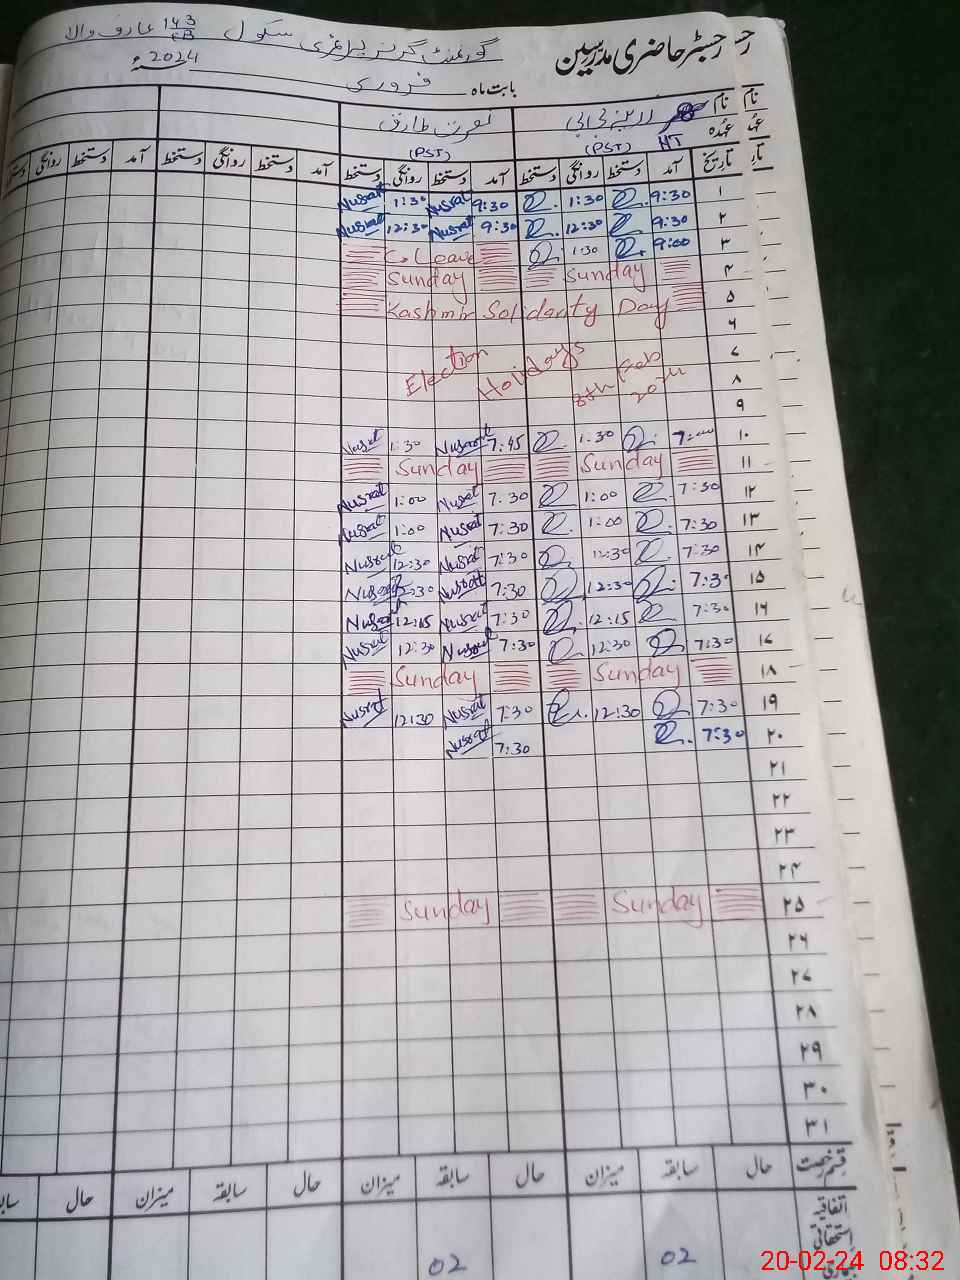 رجسٹر حاضری مدرسین گورنمنٹ گرلز پرائمری سکول 143/EB عارف والا
بابت ماہ فروری 2024ء
نام زرینہ بی بی نصرت طارق
عہدہ HT (PST) (PST)
تاریخ آمد دستخط روانگی دستخط آمد دستخط روانگی دستخط آمد دستخط روانگی دستخط آمد دستخط روانگی
۱ 9:30 1:30 9:30 Nusrat 1:30 Nusrat
۲ 9:30 12:30 9:30 Nusrat 12:30 Nusrat
۳ 9:00 1:30 C. Leave
۴ Sunday Sunday
۵ Kashmir Solidarity Day
۶
۷ Election Holidays
۸
۹
۱۰ 1:30 7:45 Nusrat 1:30 Nusrat
۱۱ Sunday Sunday
۱۲ 7:30 1:00 7:30 Nusrat 1:00 Nusrat
۱۳ 7:30 1:00 7:30 Nusrat 1:00 Nusrat
۱۴ 7:30 12:30 7:30 Nusrat 12:30 Nusrat
۱۵ 7:30 12:30 7:30 Nusrat Nusrat
۱۶ 7:30 12:15 7:30 Nusrat 12:15 Nusrat
۱۷ 7:30 12:30 7:30 Nusrat 12:30 Nusrat
۱۸ Sunday Sunday
۱۹ 7:30 12:30 7:30 Nusrat 12:30 Nusrat
۲۰ 7:30 7:30 Nusrat
۲۱
۲۲
۲۳
۲۴
۲۵ Sunday Sunday
۲۶
۲۷
۲۸
۲۹
۳۰
۳۱
قسم رخصت حال سابقہ میزان حال سابقہ میزان حال سابقہ میزان حال
اتفاقیہ
استحقاقی
02 02
20-02-24 08:32